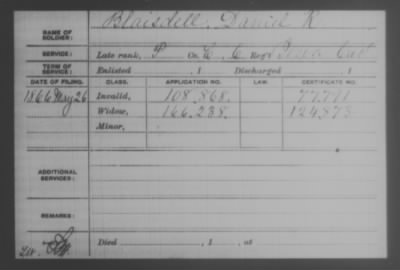 NAME OF SOLDIER: Blaisdell, Daniel R.
SERVICE: Late rank, P Co. C, 6 Reg't Cav
TERM OF SERVICE: Enlisted , 1 Discharged , 1
DATE OF FILING. CLASS. APPLICATION NO. LAW. CERTIFICATE NO.
1866 May 26 Invalid, 108.868.
Widow, 166.238. 124.873
Minor,
ADDITIONAL SERVICES:
REMARKS:
Died , 1 , at